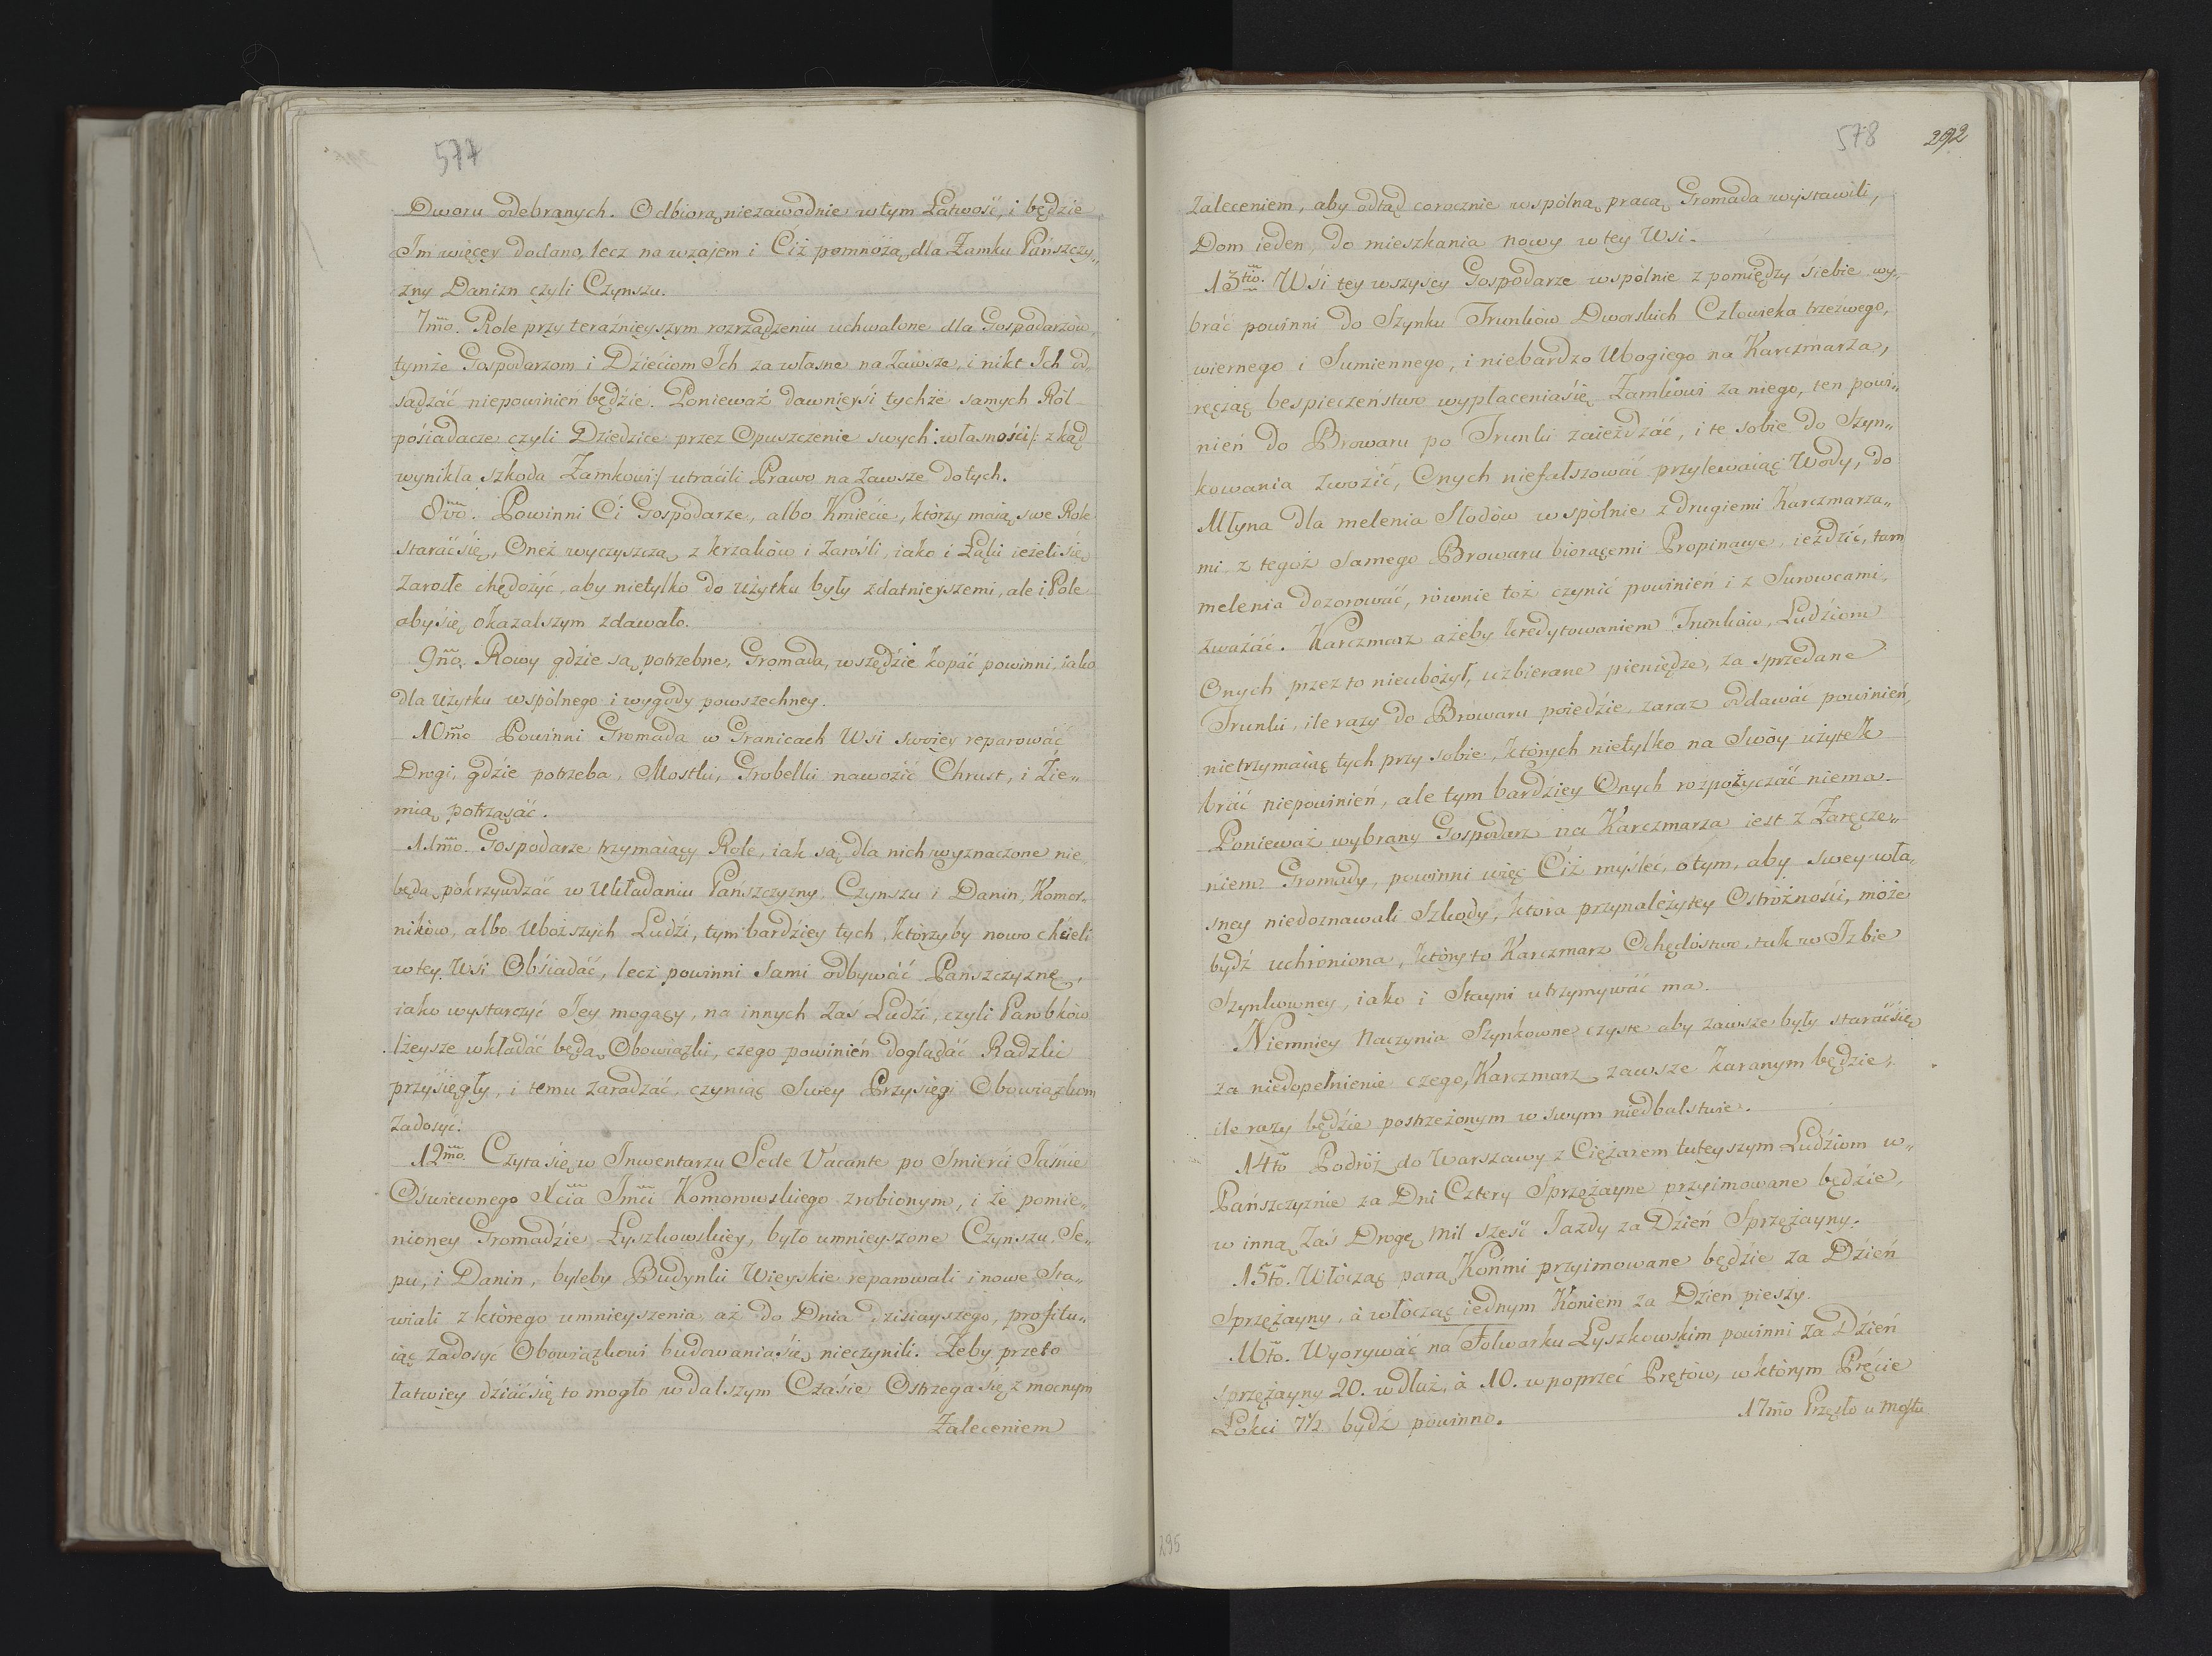 577
Dworu odebranych. Odbiorą niezawodnie w tym Łatwość, i będzie
Im więcey dodano, lecz na wzajem i Ciż pomnożą dla Zamku Pańszczy„
zny Danizn czyli Czynszu.
7mo. Role przy teraźnieyszym rozrządzeniu uchwalone dla Gospodarzów,
tymże Gospodarzom i Dzieciom Ich za własne na zawsze, i nikt Ich od„
sądzać niepowinień będzie. Ponieważ dawnieyśi tychże samych Ról
pośiadacze czyli Dziedzice przez Opuszczenie swych własności /: z kąd
wynikla szkoda Zamkowi :/ utraćili Prawo na zawsze do tych.
8vo. Powinni Ci Gospodarze, albo Kmiećie, którzy maią swe Role
starać się, Oneż wyczyszczą z krzaków i zarośli, iako i Łąki ieżeli się
zarosłe chędożyć, aby nietylko do użytku były zdatnieyszemi, ale i Pole
aby się okazalszym zdawało.
9no. Rowy gdzie są potrzebne, Gromada, wszędzie kopać powinni, iako
dla użytku wspólnego i wygody powszechney.
10mo Powinni Gromada w Granicach Wsi swoiey reparować
Drogi, gdzie potrzeba, Mostki, Grobelki nawozić Chrust, i Zie„
mią potrząsać.
11mo. Gospodarze trzymaiący Role, iak są dla nich wyznaczone nie
będą pokrzywdzać w Układaniu Pańszczyzny Czynszu i Danin, Komor„
ników, albo Uboższych Ludźi, tym bardziey tych, którzyby nowo chćieli
w tey Wśi Obśiadać, lecz powinni sami odbywać Pańszczyznę,
iako wystarczyć Jey mogący, na innych zaś Ludźi, czyli Parobków
lżeysze wkładać będą Obowiązki, czego powinień doglądać Radzki
przyśięgły, i temu zaradzać, czyniąc swey Przysięgi Obowiązkom
zadosyć.
12mo. Czyta się w Inwentarzu Sede Vacante po Śmierći Jaśnie
Oświeconego Xcia Jmci Komorowskiego zrobionym, i że pomie„
nioney Gromadzie Łyszkowskiey, było umnieyszone Czynszu, Se„
pu, i Danin, byleby Budynki Wieyskie reparowali i nowe sta„
wiali z którego umnieyszenia aż do Dnia dzisiayszego, profitu„
iąc zadosyć Obowiązkowi budowania się nieczynili. Żeby przeto
łatwiey dziać się to mogło w dalszym Czaśie Ostrzega się z mocnym
Zaleceniem
578 292
Zaleceniem, aby odtąd corocznie wspólną pracą Gromada wystawili,
Dom ieden do mieszkania nowy w tey Wsi.
13tio. Wśi tey wszyscy Gospodarze wspólnie z pomiędzy śiebie wy„
brać powinni do Szynku Trunków Dworskich Człowieka trzeźwego,
wiernego i Sumiennego, i niebardzo Ubogiego na Karczmarza,
ręcząc bespieczeństwo wypłacenia się Zamkowi za niego, ten powi„
nień do Browaru po Trunki zaieżdzać, i te sobie do Szyn„
kowania zwozić, Onych niefalszować przylewaiąc Wody, do
Młyna dla melenia Słodów wspólnie z drugiemi Karczmarza„
mi z tegoż samego Browaru biorącemi Propinacye ieździć, tam
melenia dozorować, równie toż czynić powinień i z Surowcami,
zważać. Karczmarz ażeby kredytowaniem Trunków, Ludźiom
Onych przez to nieubożył, uzbierane pieniędze, za sprzedane
Trunki, ile razy do Browaru poiedzie, zaraz oddawać powinień,
nietrzymaiąc tych przy sobie, których nietylko na Swóy użytek
brać niepowinień, ale tym bardziey Onych rozpożyczać niema.
Ponieważ wybrany Gospodarz na Karczmarza iest z Zaręcze„
niem Gromady, powinni więc Ciż myśleć o tym, aby swey wła„
sney niedoznawali Szkody, która przynależytey Ostrożności, może
bydź uchroniona, który to Karczmarz Ochędóstwo, tak w Izbie
Szynkowney, iako i Stayni utrzymywać ma.
Niemniey Naczynia Szynkowne czyste aby zawsze były starać się,
za niedopełnienie czego, Karczmarz zawsze karanym będzie,
ile razy będzie postrzeżonym w swym niedbalstwie.
14to Podróż do Warszawy z Ciężarem tuteyszym Ludźiom w„
Pańszczyznie za Dni Cztery Sprzężayne przyimowane będzie,
w inną zaś Drogę Mil sześć Jazdy za Dzień Sprzężayny.
15to. Włócząc parą Końmi przyimowane będzie za Dzień
Sprzężayny, a włócząc iednym Koniem za Dzień pieszy.
16to. Wyorywać na Folwarku Łyszkowskim powinni za Dzień
sprzężayny 20. w dłuż, a 10. w poprzeć Prętów, w którym Pręcie
Łokci 7½ bydź powinno.
17mo Przęsło u mostu
295